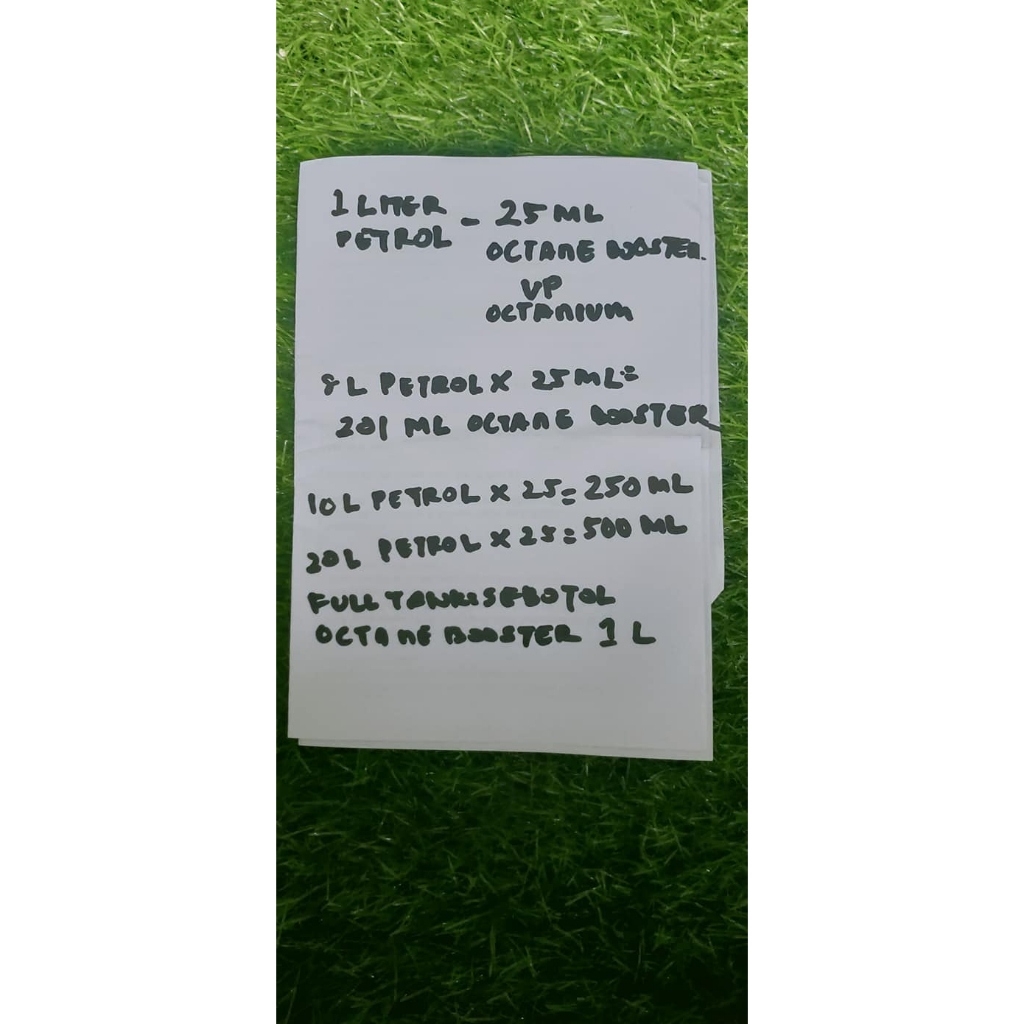 1 LITER
PETROL - 25 ML
OCTANE BOOSTER.
VP
OCTANIUM
8 L PETROL X 25 ML =
201 ML OCTANE BOOSTER
10 L PETROL X 25 = 250 ML
20 L PETROL X 25 = 500 ML
FULL TANK = SEBOTOL
OCTANE BOOSTER 1 L